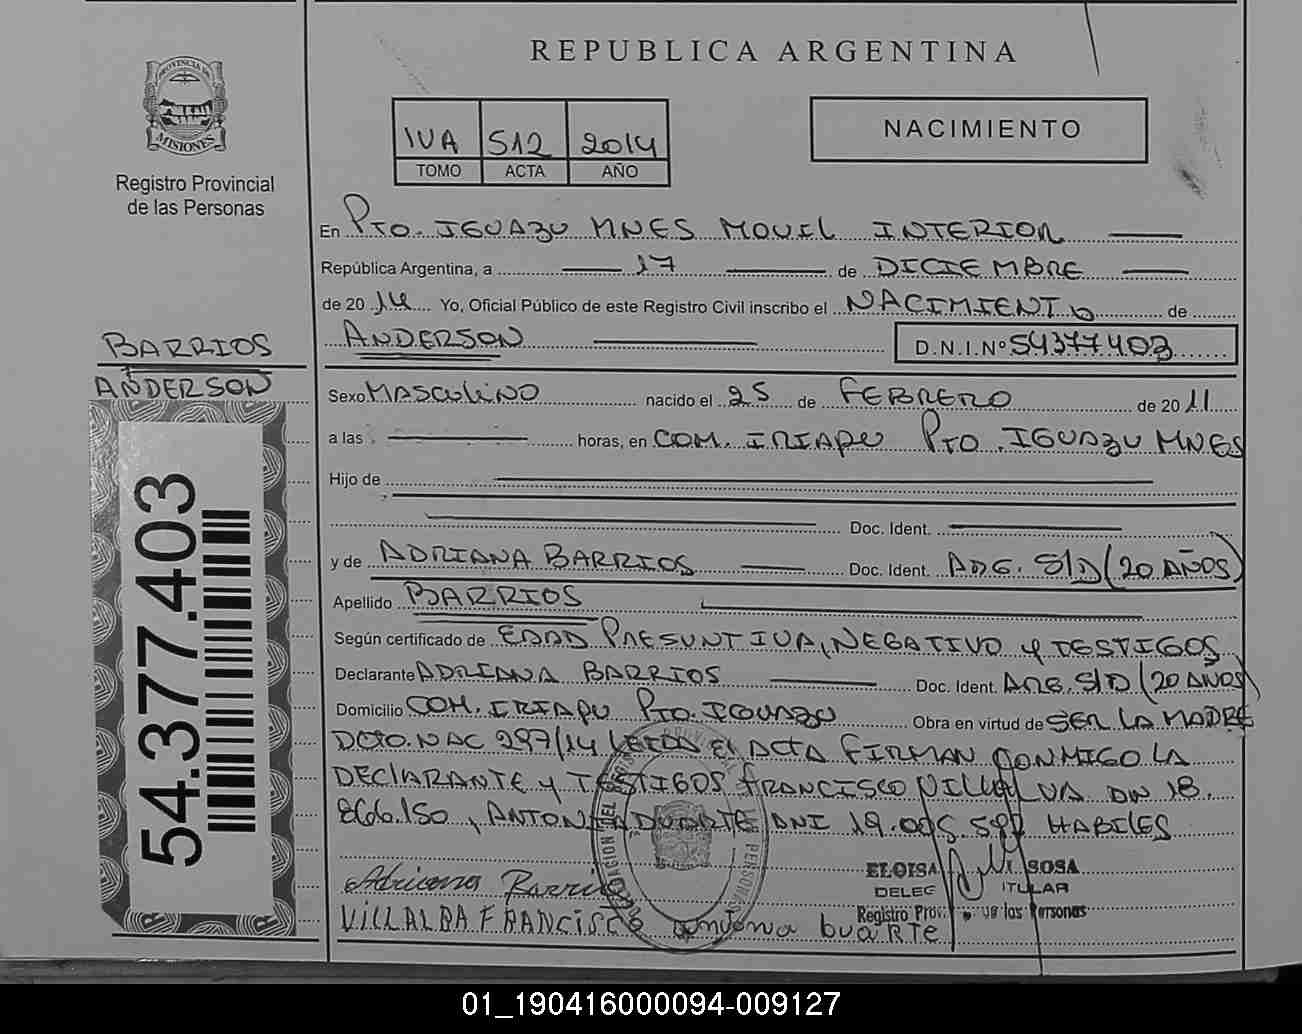 REPUBLICA ARGENTINA
PROVINCIA DE
MISIONES
Registro Provincial
de las Personas
IVA 512 2014
TOMO ACTA AÑO
NACIMIENTO
En PTO. IGUAZU MNES MOVIL INTERIOR
República Argentina, a 17 de DICIEMBRE
de 2014 Yo, Oficial Público de este Registro Civil inscribo el NACIMIENTO de
ANDERSON D.N.I.Nº 54377403
BARRIOS
ANDERSON
54.377.403
Sexo MASCULINO nacido el 25 de FEBRERO de 2011
a las horas, en COM. IRIAPU PTO. IGUAZU MNES
Hijo de
Doc. Ident.
y de ADRIANA BARRIOS Doc. Ident. ARG. S/D (20 AÑOS)
Apellido BARRIOS
Según certificado de EDAD PRESUNTIVA, NEGATIVO y TESTIGOS
Declarante ADRIANA BARRIOS Doc. Ident. ARG. S/D (20 AÑOS)
Domicilio COM. IRIAPU PTO. IGUAZU Obra en virtud de SER LA MADRE
DCTO. NAC 297/14 LEIDA EL ACTA FIRMAN CONMIGO LA
DECLARANTE y TESTIGOS FRANCISCO VILLALVA DNI 18.
866.150, ANTONIA DUARTE DNI 19.005.597 HABILES
Adriana Barrios
ELOISA SOSA
DELEG TITULAR
Registro Prov. de las Personas
VILLALBA FRANCISCO antonia DUARTE
01_190416000094-009127